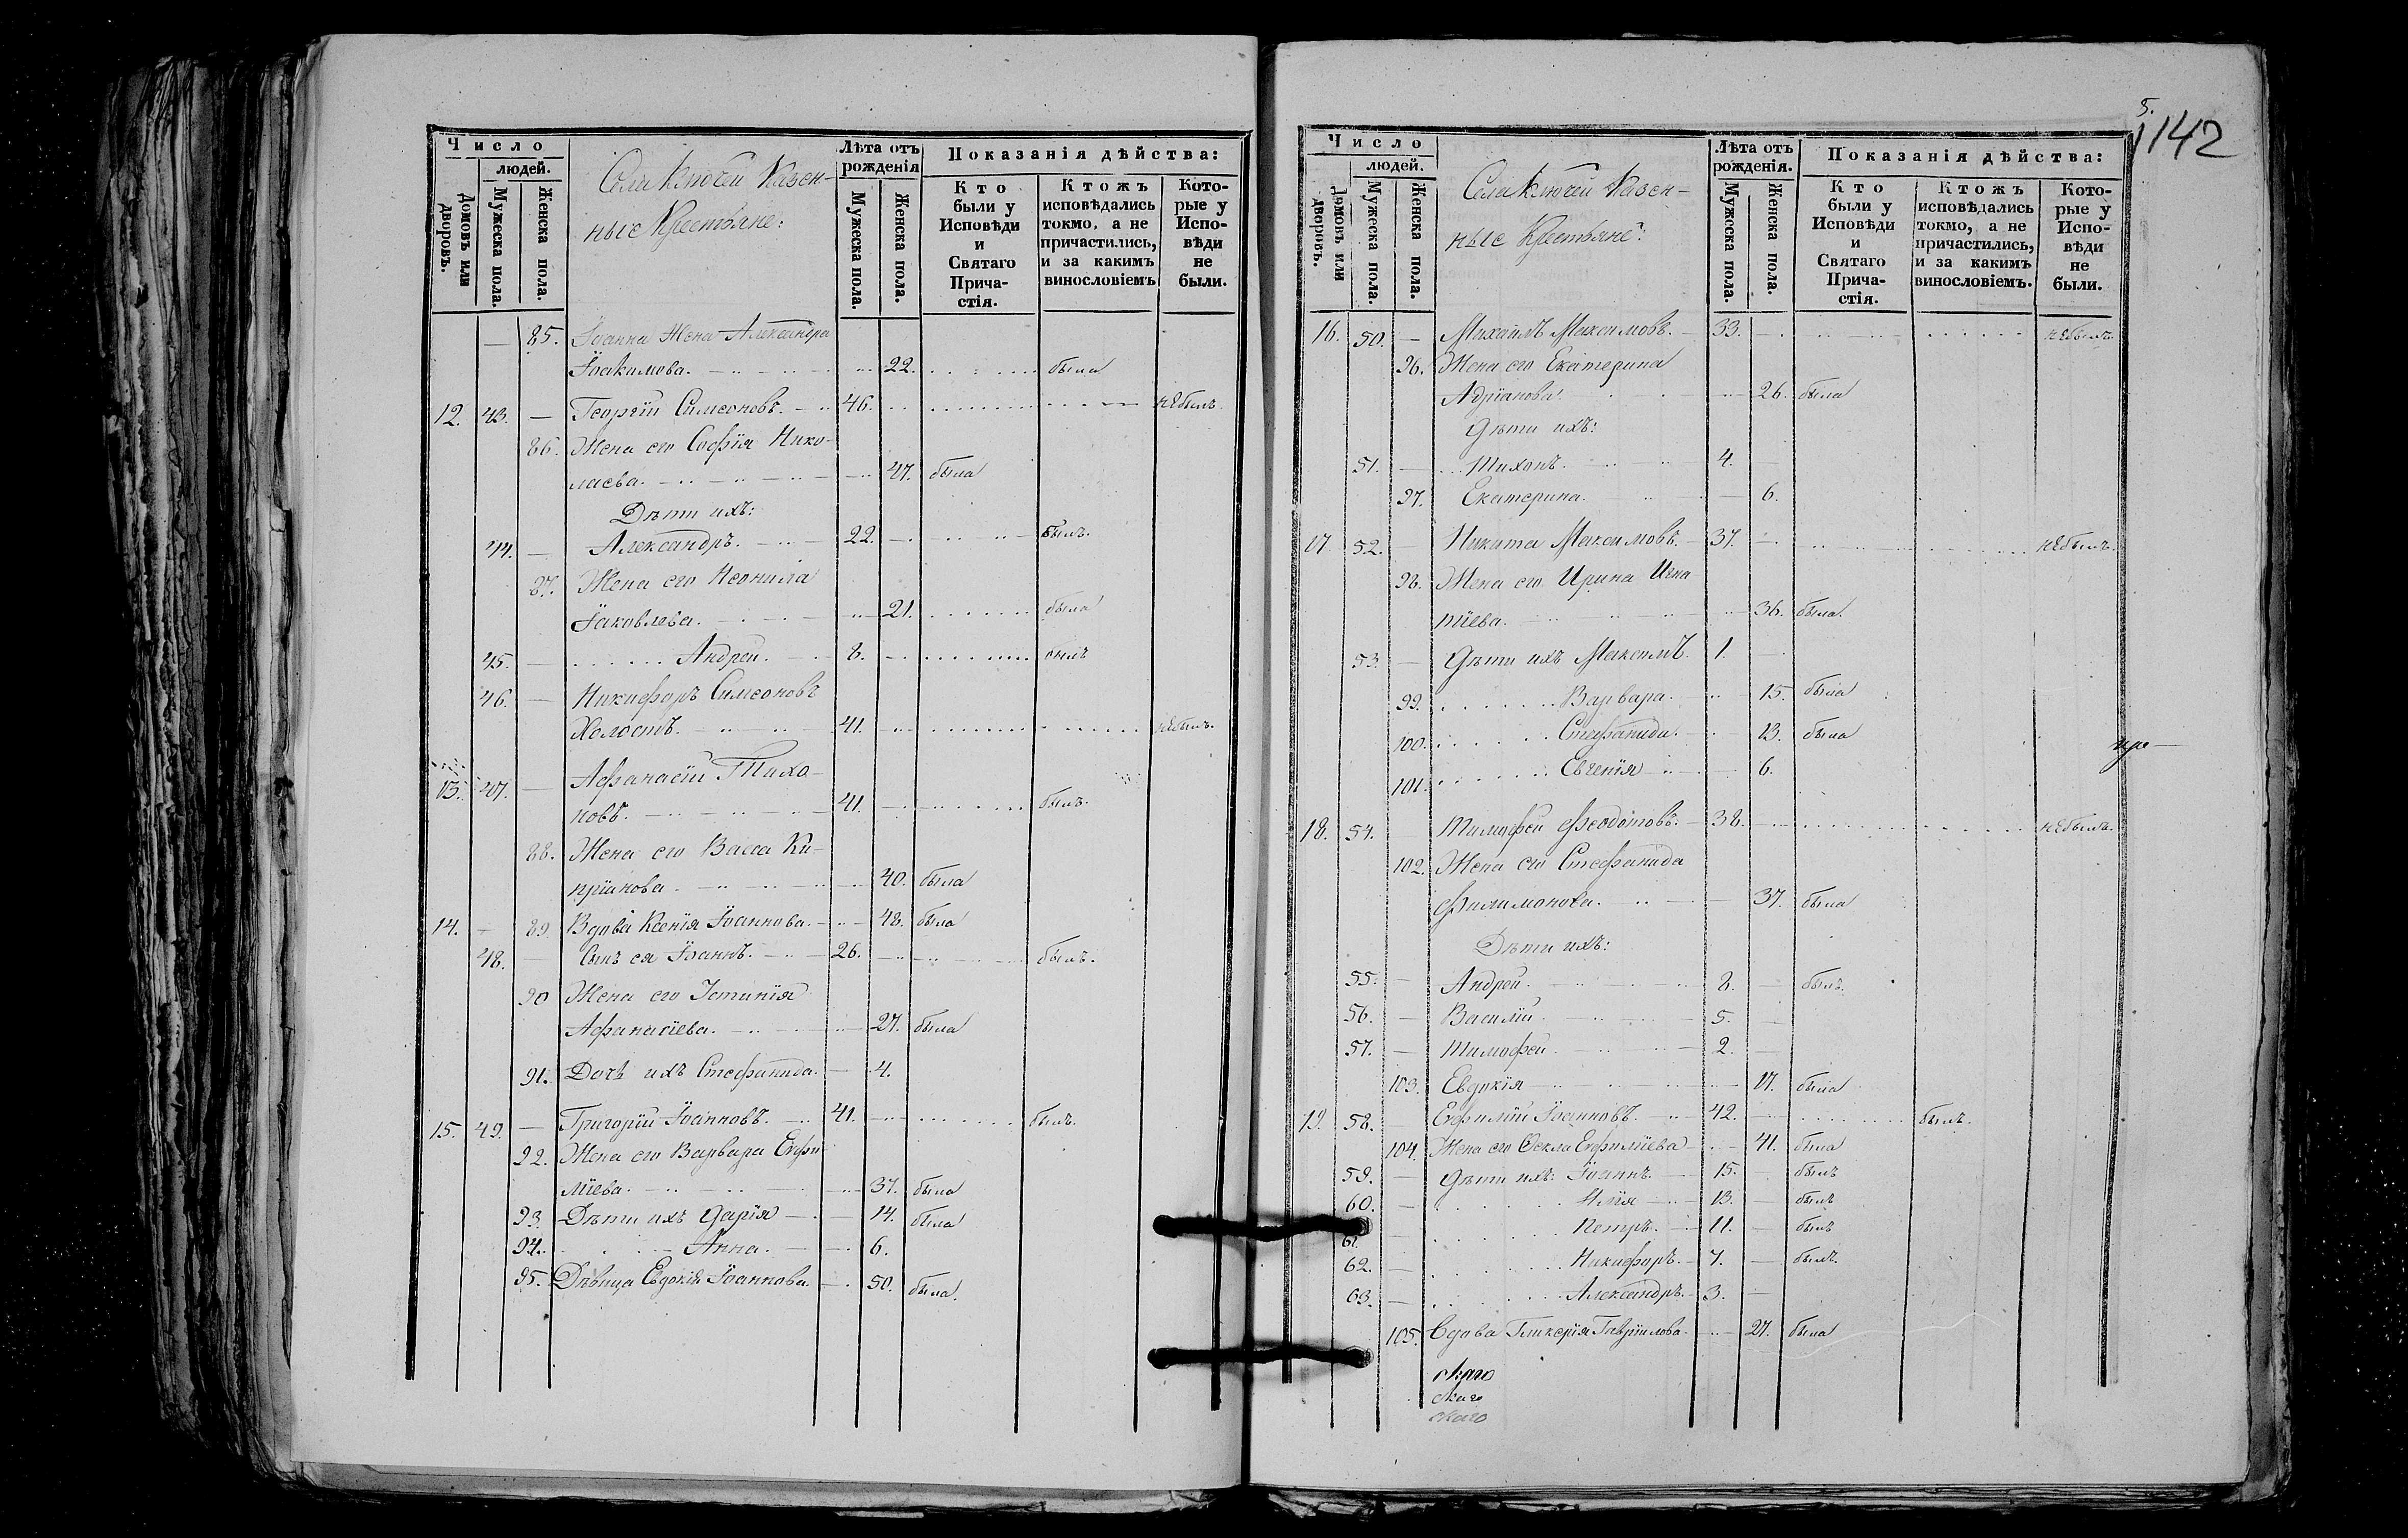 Число
людей.
Домовъ или дворовъ.
Мужеска пола.
Женска пола.
Села Ключей Казен-
ные Крестьяне:
Лѣта отъ
рожденія
Мужеска пола.
Женска пола.
Показанія дѣйства:
Кто были у Исповѣди и Святаго Прича-стія.
Ктожъ исповѣдались токмо, а не причастились, и за какимъ винословіемъ
Кото-рые у Испо-вѣди не были.
85. Іоанна Жена Александра
Іоакимова. 22. была
12. 43. Георгій Симеоновъ. 46. небылъ.
86. Жена его Софія Нико-
лаева. 47. была
Дѣти ихъ:
44. Александръ. 22. былъ.
87. Жена его Неонила
Іаковлева. 21. была
45. Андрей. 8. былъ
46. Никифоръ Симеоновъ
Холостъ. 41. небылъ.
13. 47. Афанасій Тихо-
новъ. 41. былъ.
88. Жена его Васса Ки-
пріанова. 40. была
14. 89. Вдова Ксенія Іоаннова. 48. была
48. Сынъ ея Іоаннъ. 26. былъ.
90 Жена его Устинія
Афанасіева. 27. была
91. Дочь ихъ Стефанида. 4.
15. 49. Григорій Іоанновъ. 41. былъ.
92. Жена его Варвара Евфи-
міева. 37. была
93. Дѣти ихъ Дарія 14. была
94. Анна. 6.
95. Дѣвица Евдокія Іоаннова. 50. была.
5.
1142
Число
людей.
Домовъ или дворовъ.
Мужеска пола.
Женска пола.
Села Ключей Казен-
ные Крестьяне:
Лѣта отъ
рожденія.
Мужеска пола.
Женска пола.
Показанія дѣйства:
Кто были у Исповѣди и Святаго Прича-стія.
Ктожъ исповѣдались токмо, а не причастились, и за какимъ винословіемъ.
Кото-рые у Испо-вѣди не были.
16. 50. Михаилъ Максимовъ. 33. небылъ.
96. Жена его Екатерина
Адріанова. 26. была
Дѣти ихъ:
51. Тихонъ. 4.
97. Екатерина. 6.
17. 52. Никита Максимовъ. 37. небылъ.
98. Жена его Ирина Игна
тіева. 36. была.
53. Дѣти ихъ Максимъ. 1.
99. Варвара. 15. была
100. Стефанида. 13. была
пре-
101. Евгенія 6.
18. 54. Тимофей Феодотовъ. 38. небылъ.
102. Жена его Стефанида
Филимонова. 37. была
Дѣти ихъ:
55. Андрей. 8. былъ.
56. Василій. 5.
57. Тимофей. 2.
103. Евдокія 17. была
19. 58. Евфимій Іоанновъ. 42. былъ.
104. Жена его Фекла Евфиміева 41. была
59. Дѣти ихъ: Іоаннъ. 15. былъ
60. Илія 13. былъ
61. Петръ. 11. былъ
62. Никифоръ. 7. былъ.
63. Александръ. 3.
105. Вдова Гликерія Гавріилова. 27. была
скаго
скаго
скаго